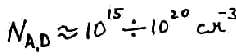 N_{A,D} ≈ 10^{15} ÷ 10^{20} см^{-3}